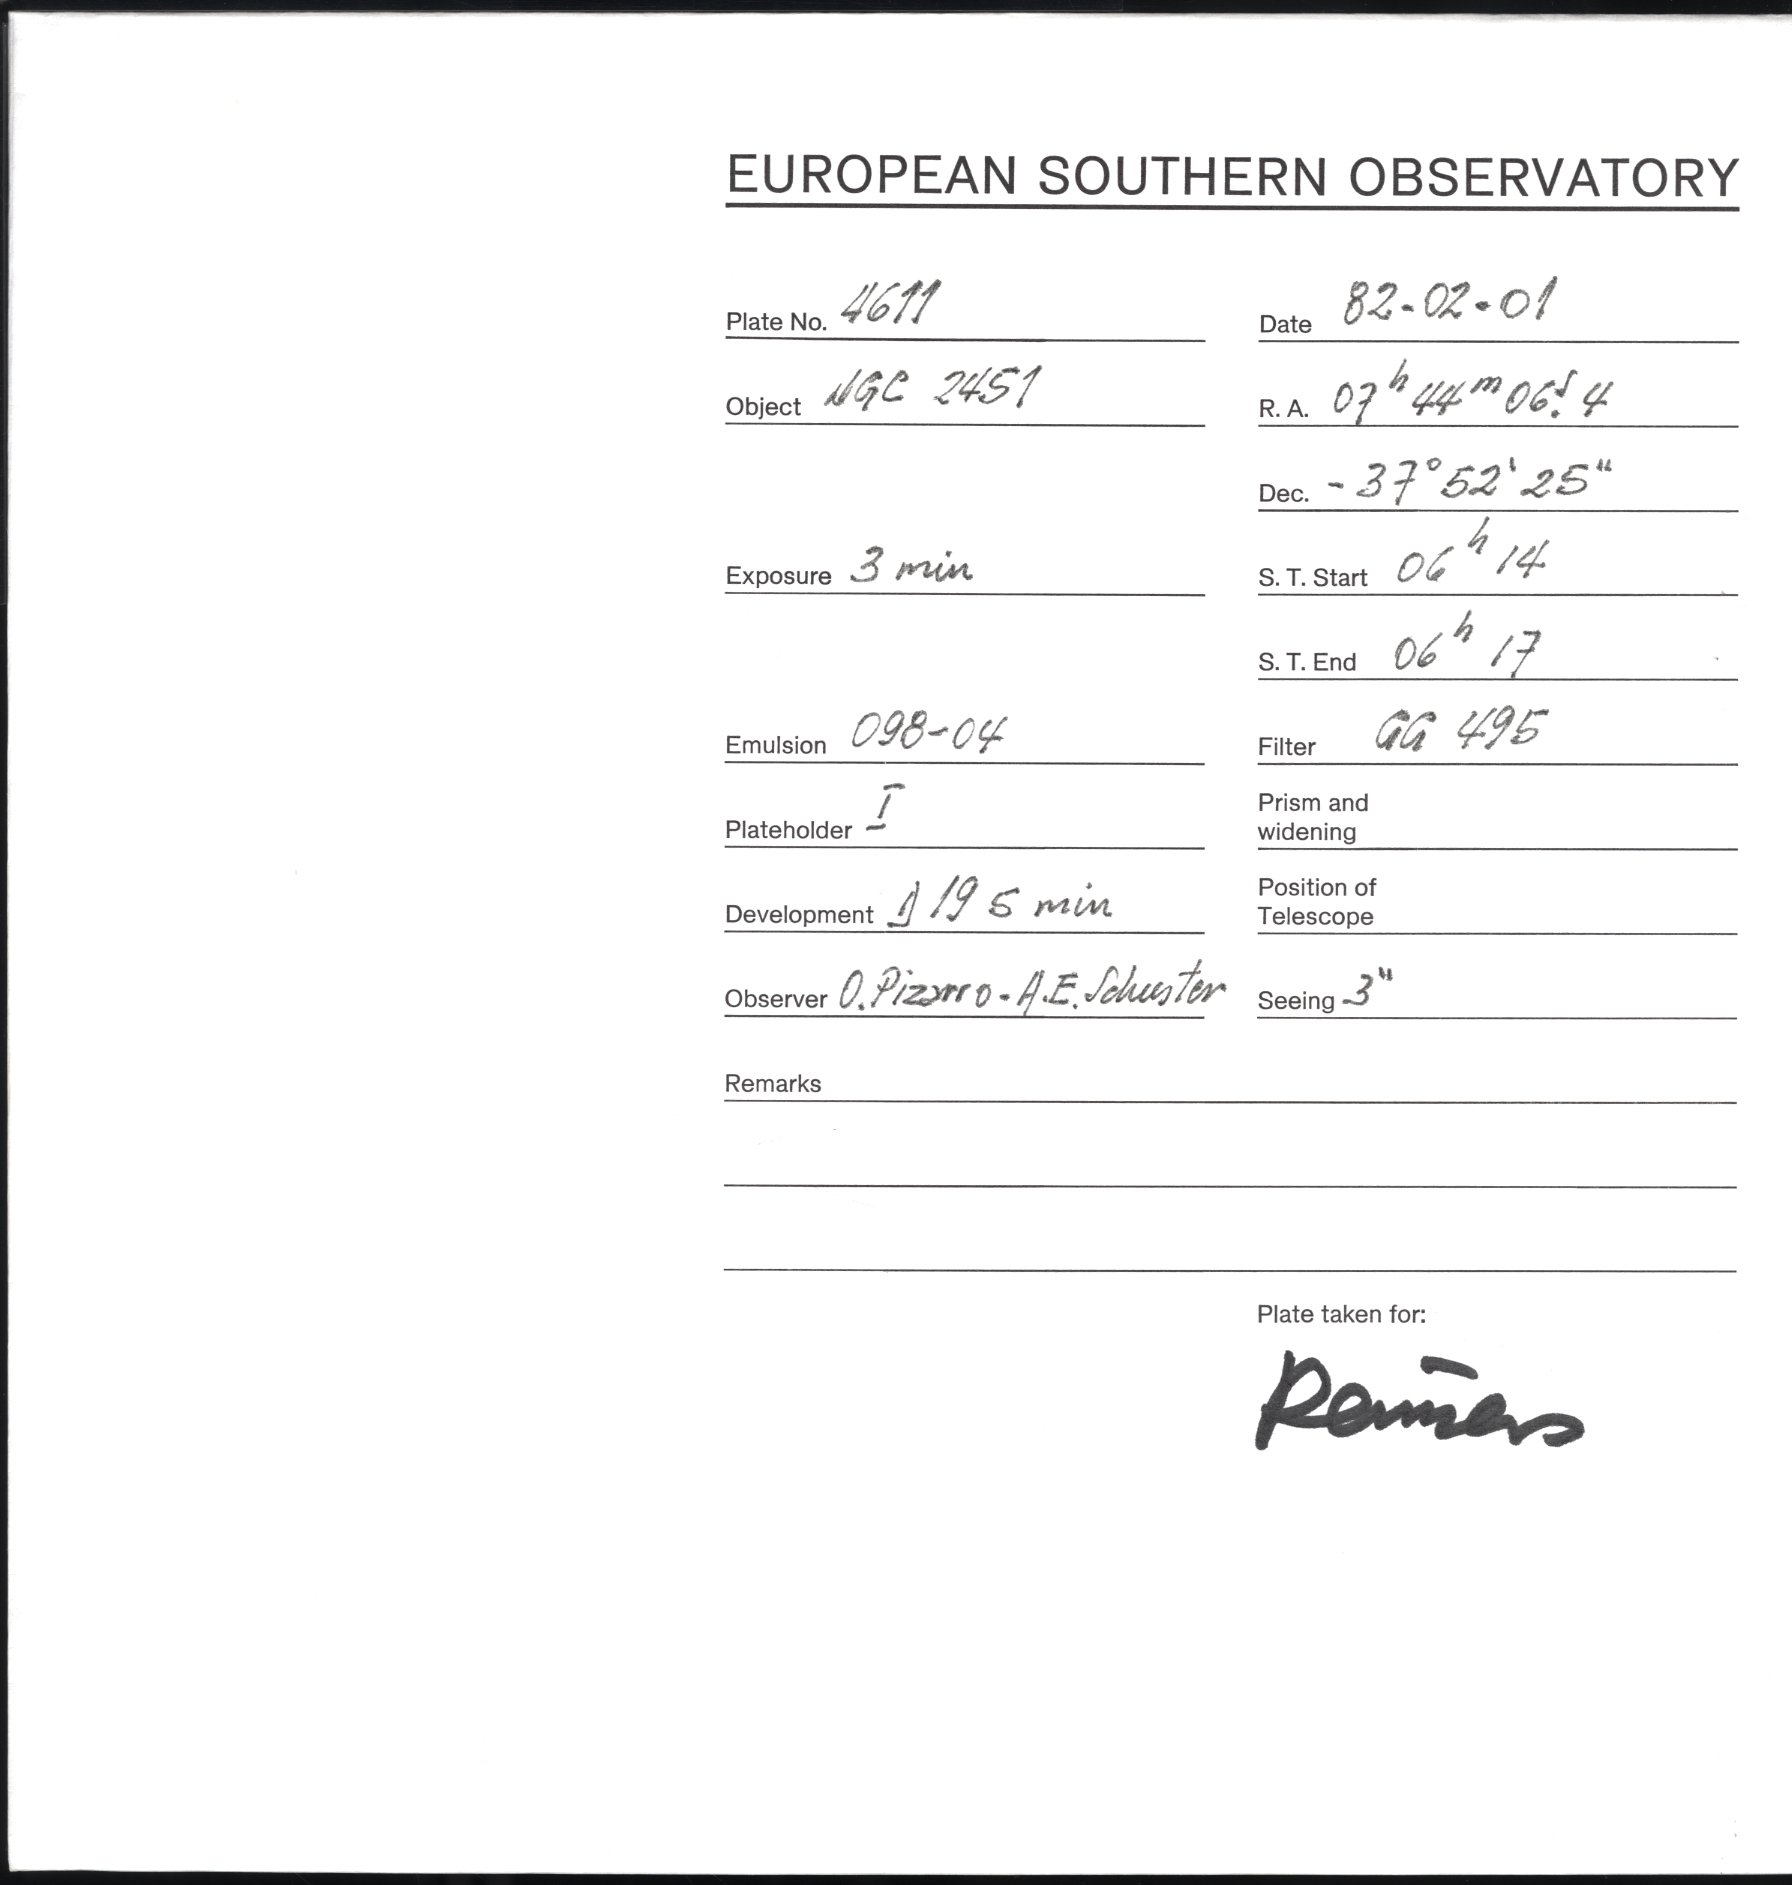 EUROPEAN SOUTHERN OBSERVATORY
Plate No. 4611
Date 82-02-01
Object NGC 2451
R. A. 07h 44m 06s.4
Dec. -37° 52' 25"
Exposure 3 min
S. T. Start 06h 14
S. T. End 06h 17
Emulsion 098-04
Filter GG 495
Plateholder I
Prism and
widening
Development D 19 5 min
Position of
Telescope
Observer O. Pizarro - A.E. Schuster
Seeing 3"
Remarks
Plate taken for:
Reimers